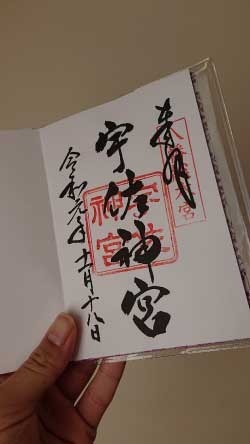 奉拝
宇佐神宮
宇佐
神宮
令和元年十一月十八日